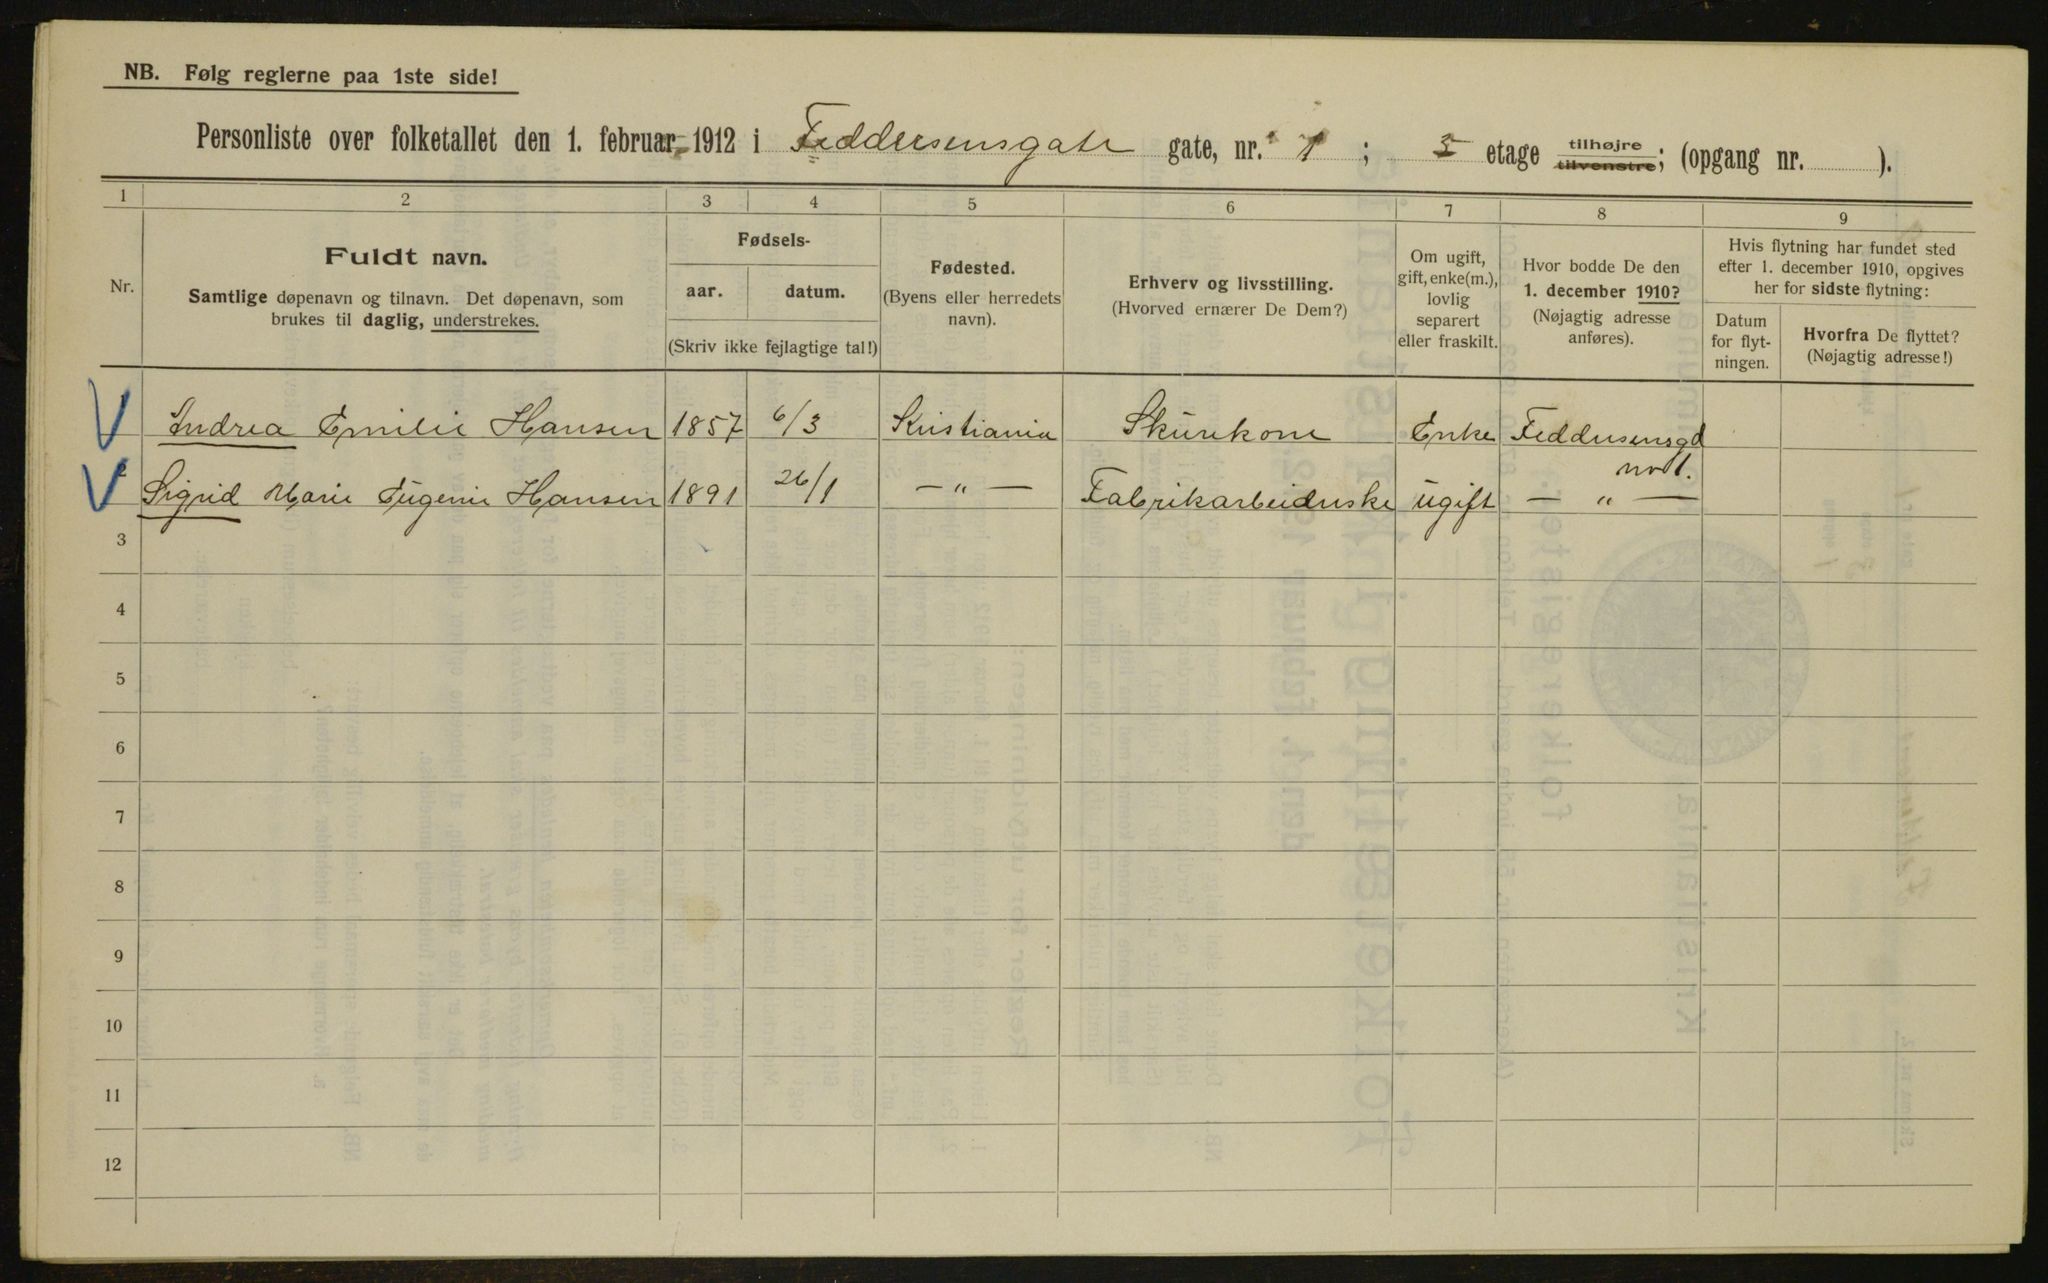 NB. Følg reglerne paa 1ste side!
Personliste over folketallet den 1. februar 1912 i Feddersensgate gate, nr. 1; 3 etage tilhøjre tilvenstre; (opgang nr. ).
1 2 3 4 5 6 7 8 9
Nr.
Fuldt navn.
Samtlige døpenavn og tilnavn. Det døpenavn, som
brukes til daglig, understrekes.
Fødsels-
aar. datum.
(Skriv ikke fejlagtige tal!)
Fødested.
(Byens eller herredets
navn).
Erhverv og livsstilling.
(Hvorved ernærer De Dem?)
Om ugift,
gift, enke(m.),
lovlig
separert
eller fraskilt.
Hvor bodde De den
1. december 1910?
(Nøjagtig adresse
anføres).
Hvis flytning har fundet sted
efter 1. december 1910, opgives
her for sidste flytning:
Datum
for flyt-
ningen.
Hvorfra De flyttet?
(Nøjagtig adresse!)
1 Andrea Emilie Hansen 1857 6/3 Kristiania Skurekone Enke Feddersensgd
no 1.
2 Sigrid Marie Eugenie Hansen 1891 26/1 — „ — Fabrikarbeiderske ugift — „ —
3
4
5
6
7
8
9
10
11
12